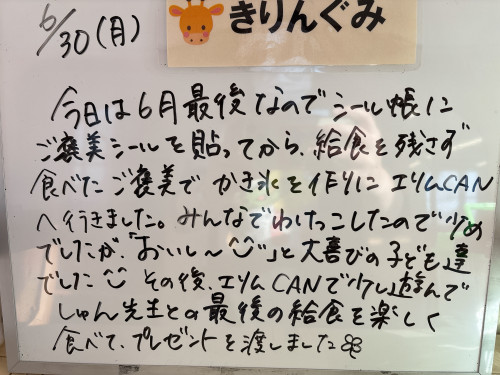 6/30(月)
きりんぐみ
今日は6月最後なのでシール帳に
ご褒美シールを貼ってから、給食を残さず
食べたご褒美でかき氷を作りにエリムCAN
へ行きました。みんなでわけっこしたので少め
でしたが、「おいし〜」と大喜びの子ども達
でした その後、エリムCANで少し遊んで
しゅん先生との最後の給食を楽しく
食べて、プレゼントを渡しました